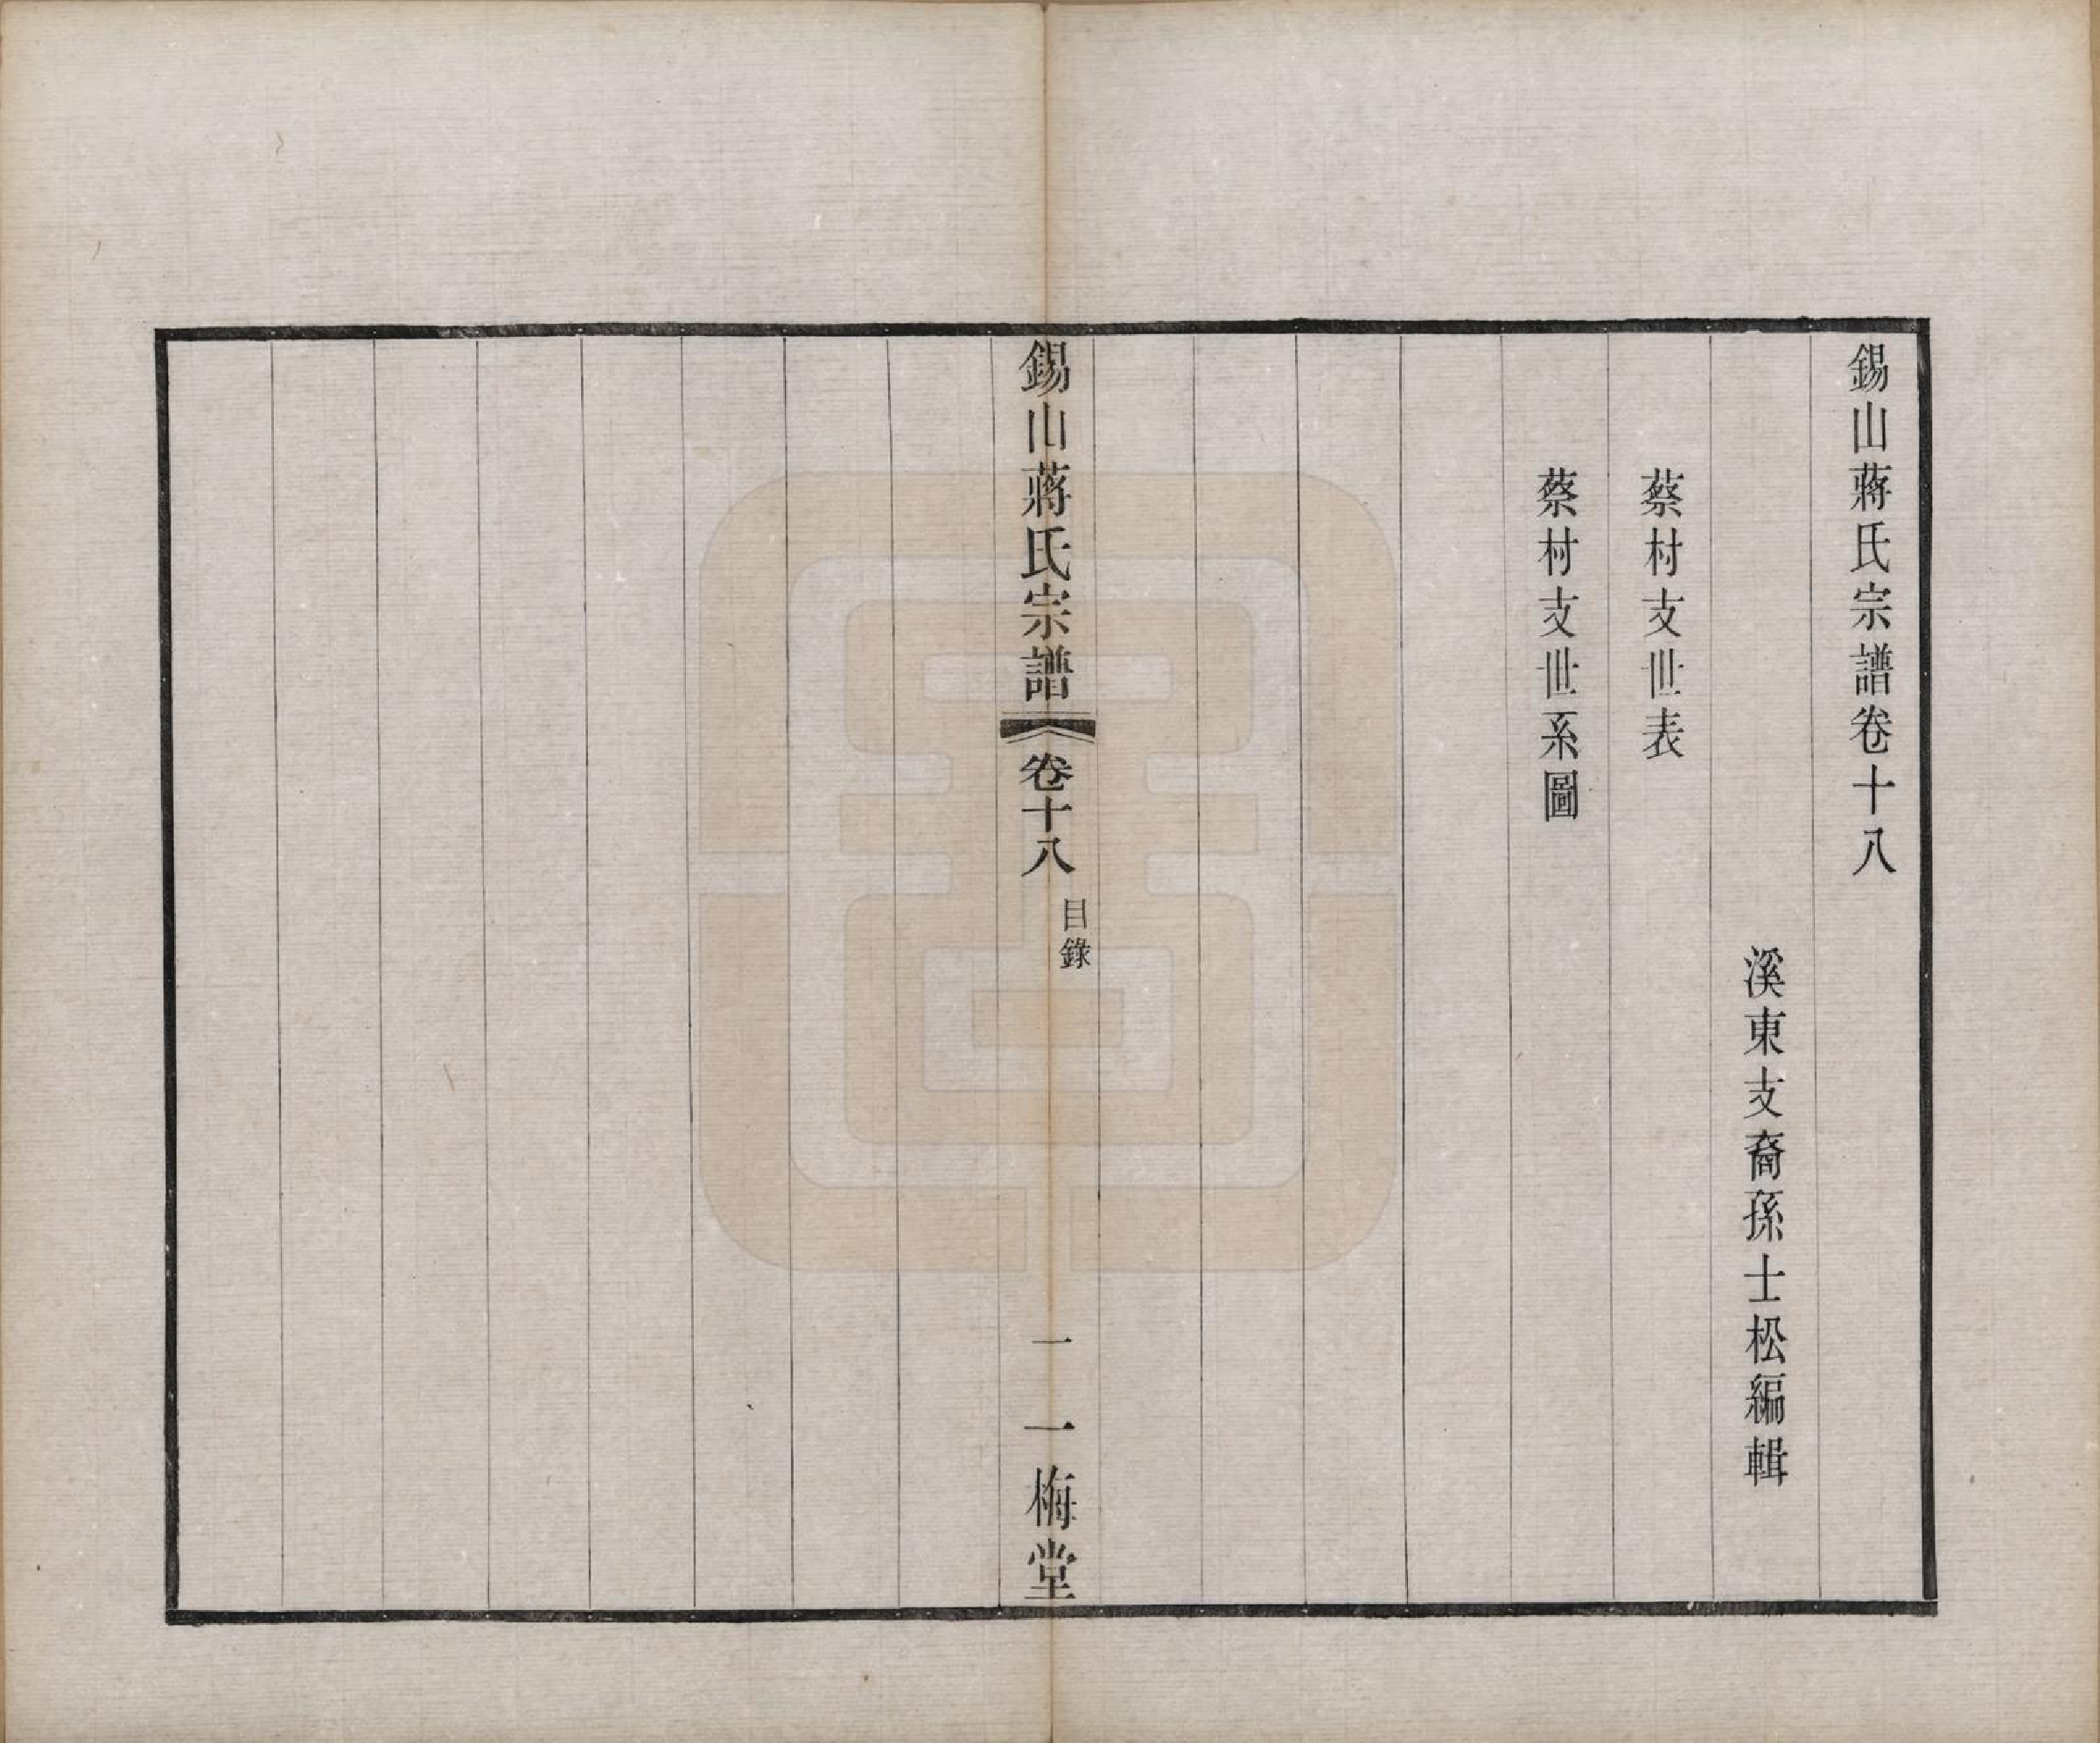 錫山蔣氏宗譜卷十八
溪東支裔孫士松編輯
蔡村支世表
蔡村支世系圖
錫山蔣氏宗譜
卷十八
目錄
一
一梅堂